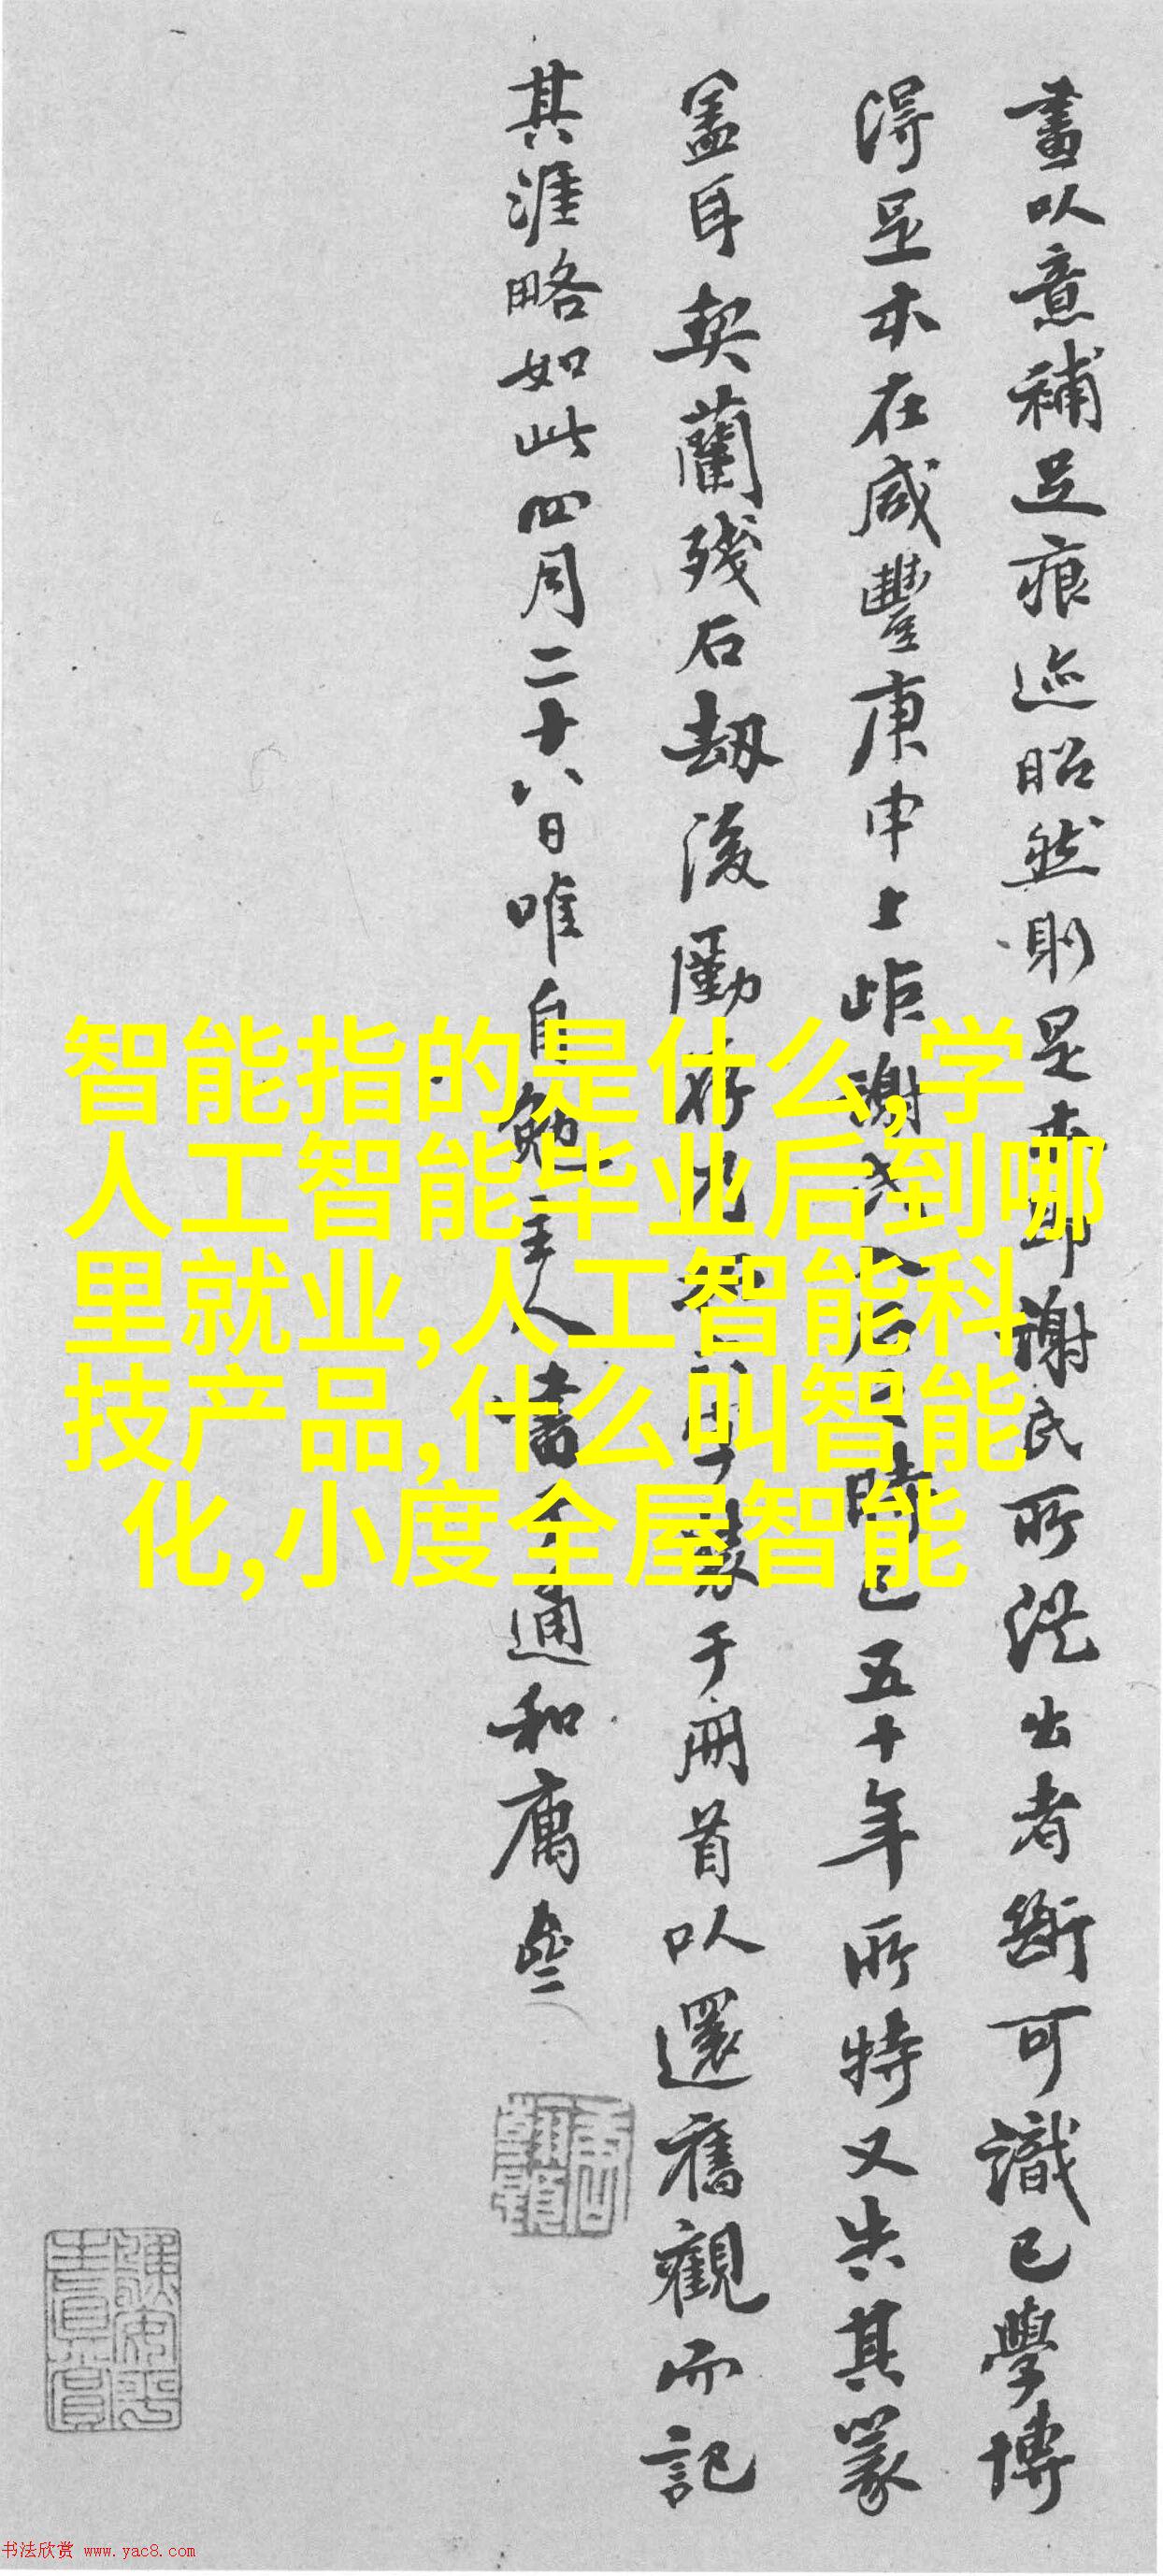 畫以意補足痕迹昭然則是本即謝氏所從出者斷可識已學博
得足本在咸豐庚申上距謝氏入石之時已五十年所特又失其篆
盖耳契蘭殘石劫後勵存
于冊首以還舊觀而記
其涯略如此四月二十八日唯自勉主人書于通和
智能指的是什么,学
人工智能毕业后到哪
里就业,人工智能科
技产品,什么叫智能
化,小度全屋智能
书法欣赏 www.yac8.com